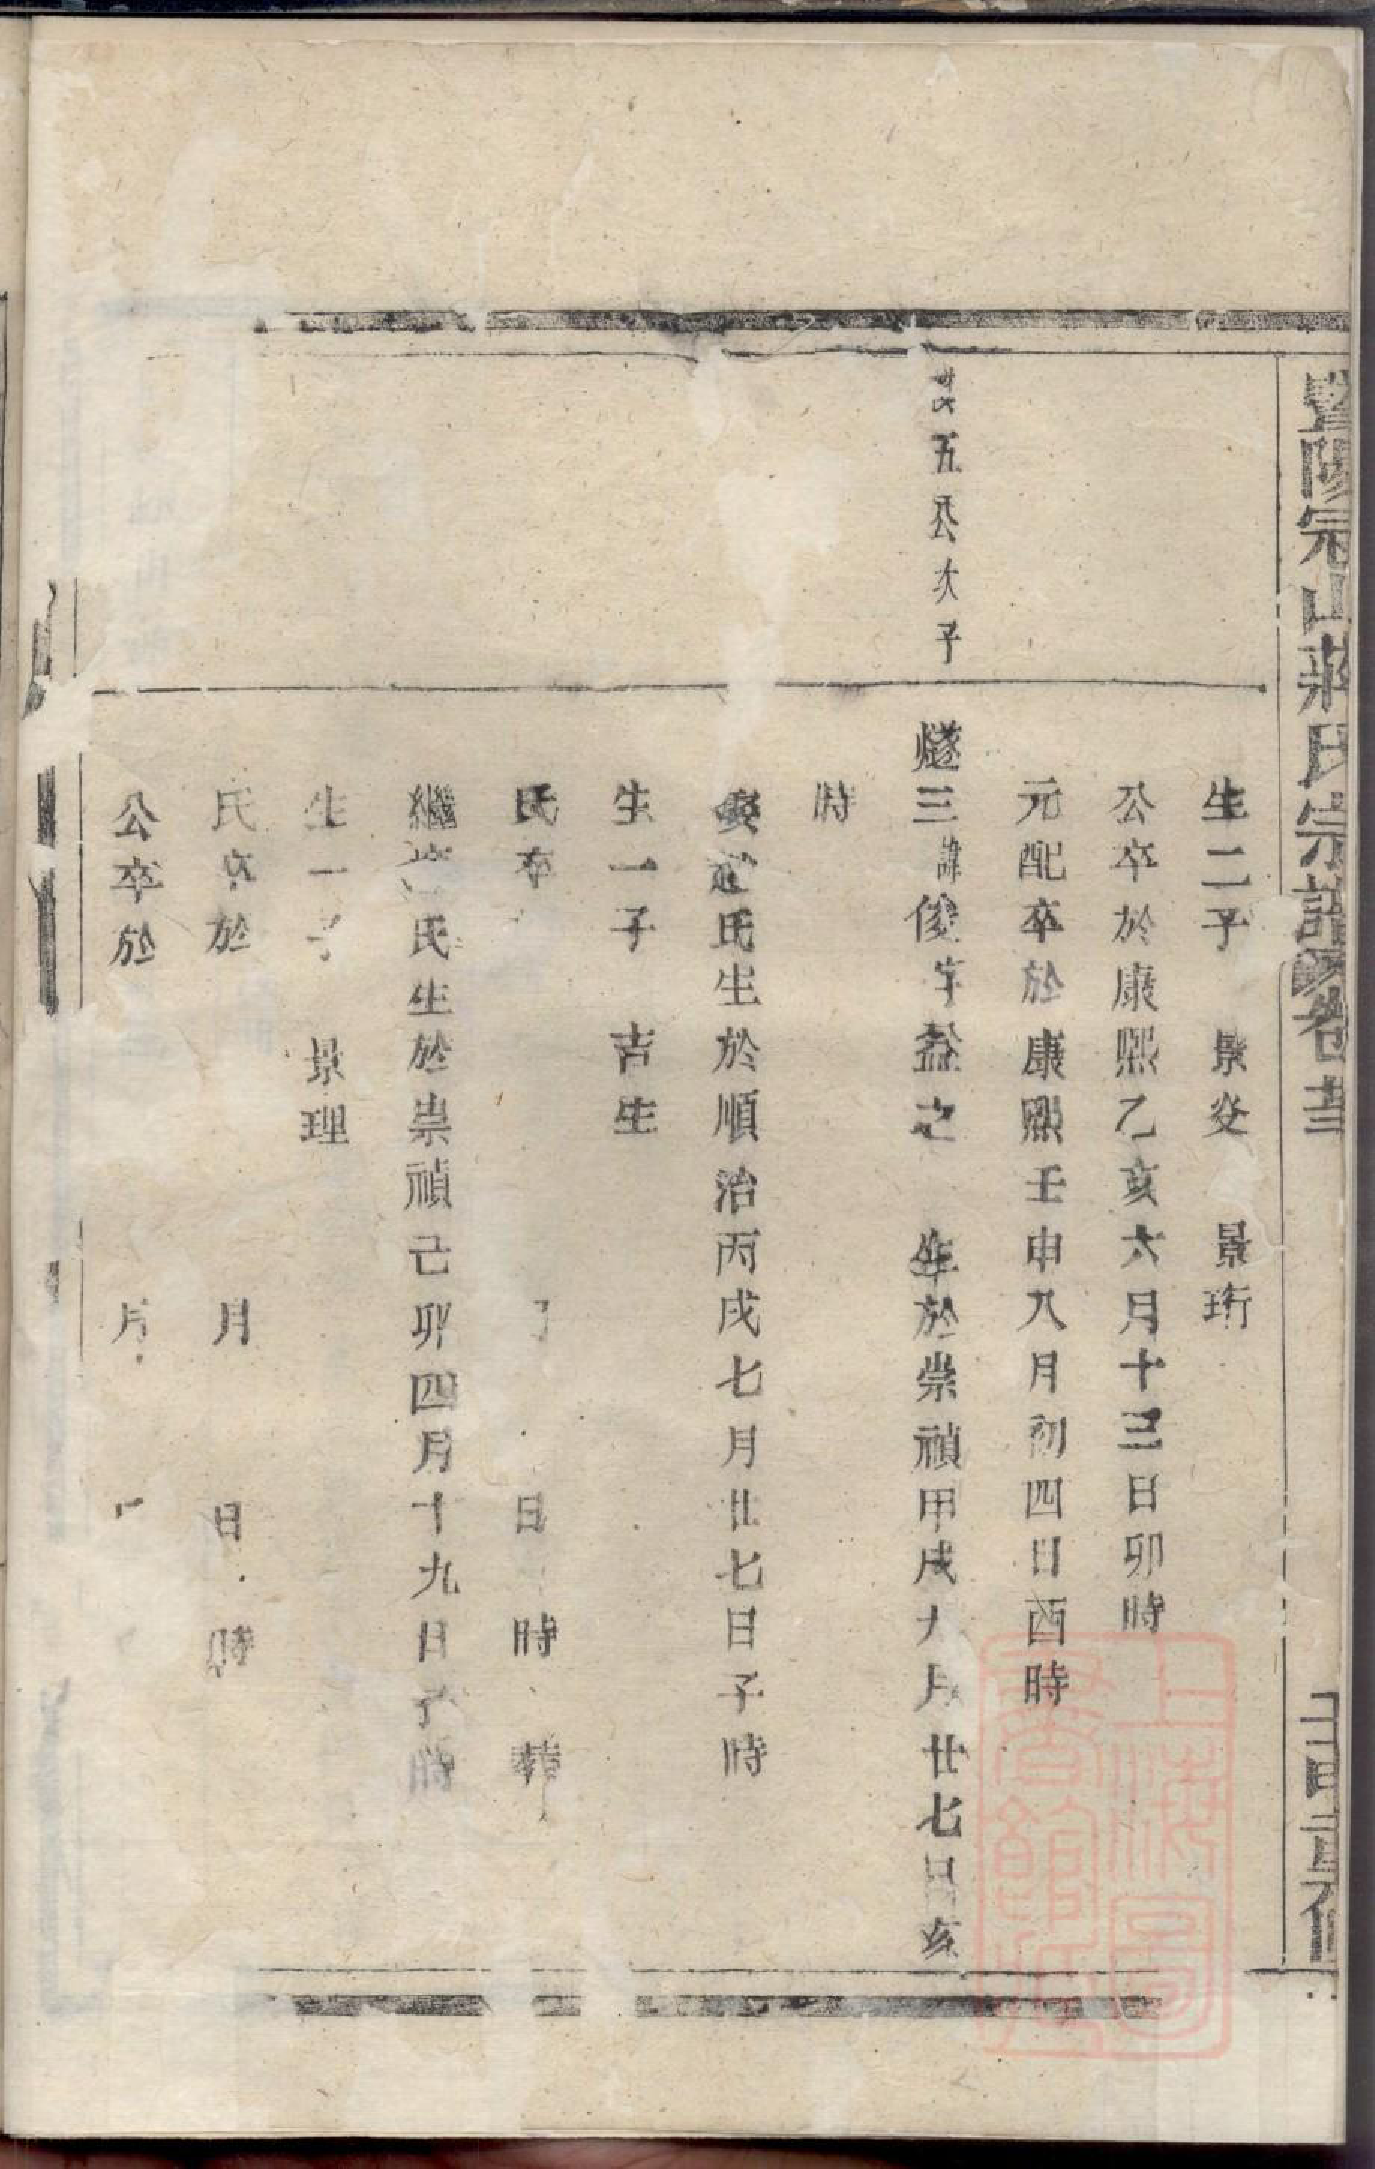 暨陽宗山蔣氏宗譜
生二子　景炎　景珩
公卒於康熙乙亥六月十三日卯時
元配卒於康熙壬申八月初四日酉時
五公次子
燧三諱俊字益之　生於崇禎甲戌九月廿七日亥
時
氏生於順治丙戌七月廿七日子時
生一子　吉生
氏卒　日　時　葬
繼　氏生於崇禎己卯四月十九日子時
生一子　景理
氏卒於　月　日　時
公卒於　月
上海圖書館藏